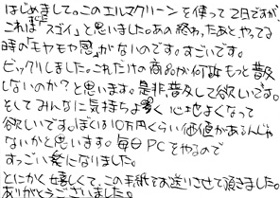 はじめまして。このエルマクリーンを使って2日ですが
これは「スゴイ」と思いました。あの終わったあとやってる
時のモヤモヤ感がないのです。すごいです。
ビックリしました。これだけの商品が何故もっと普及
しないのか?と思います。是非普及して欲しいです。
そしてみんなに気持ちよく心地よくなって
欲しいです。ぼくは10万円くらい価値があるんじゃ
ないかと思います。毎日PCをやるので
すっごい楽になりました。
とにかく嬉しくて、この手紙でお送りさせて頂きました。
ありがとうございました。